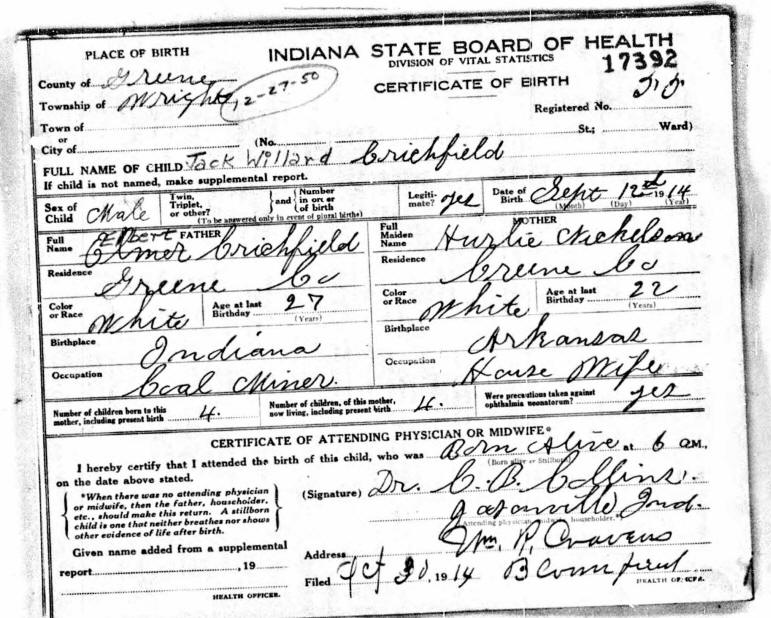 PLACE OF BIRTH
INDIANA STATE BOARD OF HEALTH
DIVISION OF VITAL STATISTICS
17392
County of Greene
CERTIFICATE OF BIRTH
Township of Wright
12-27-50
Registered No.
Town of
or
City of (No. St.; Ward)
FULL NAME OF CHILD Jack Willard Crichfield
If child is not named, make supplemental report.
Sex of Child Male
Twin, Triplet, or other? and Number in order of birth
(To be answered only in event of plural births)
Legiti-mate? yes
Date of Birth Sept 12th 1914
(Month) (Day) (Year)
FATHER
Full Name Elmer Crichfield
Elbert
MOTHER
Full Maiden Name Hurlie Nickelson
Residence Greene Co
Residence Greene Co
Color or Race White
Age at last Birthday 27
(Years)
Color or Race White
Age at last Birthday 22
(Years)
Birthplace Indiana
Birthplace Arkansas
Occupation Coal Miner.
Occupation House Wife
Number of children born to this mother, including present birth 4.
Number of children, of this mother, now living, including present birth 4.
Were precautions taken against ophthalmia neonatorum? yes
CERTIFICATE OF ATTENDING PHYSICIAN OR MIDWIFE*
I hereby certify that I attended the birth of this child, who was Born Alive at 6 a M.,
(Born alive or Stillborn)
on the date above stated.
*When there was no attending physician
or midwife, then the father, householder,
etc., should make this return. A stillborn
child is one that neither breathes nor shows
other evidence of life after birth.
(Signature) Dr. C. B. Collins.
Jasonville Ind.
Given name added from a supplemental
report , 19
HEALTH OFFICER.
Wm. P. Cravens
Address
Bloomfield
Filed Oct 30, 1914
HEALTH OFFICER.